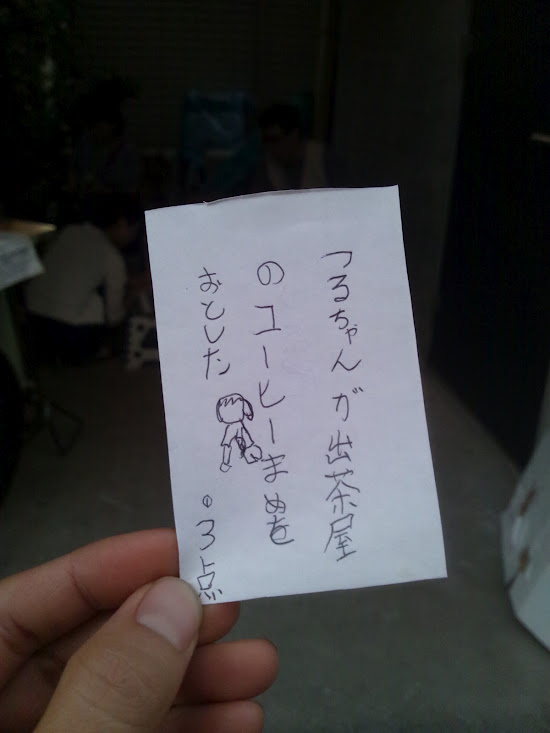 つるちゃんが出茶屋
のコーヒーまめを
おとした
・3点